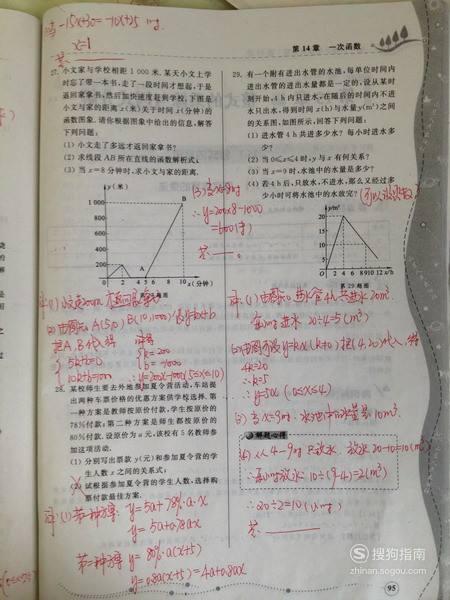 当 -15x+30=-10x+25 时.
x=1
第14章 一次函数
27. 小文家与学校相距1 000米.某天小文上学
时忘了带一本书,走了一段时间才想起,于是
返回家拿书,然后加快速度赶到学校.下图是
小文与家的距离 y(米)关于时间 x(分钟)的
函数图象.请你根据图象中给出的信息,解答
下列问题:
(1) 小文走了多远才返回家拿书?
(2) 求线段AB所在直线的函数解析式;
(3) 当x=8分钟时,求小文与家的距离.
y(米)
1 000
800
600
400
200
0
5
10
x(分钟)
A
B
(3)当x=8时
∴y=200×8-1000
=600(米)
答:
解:(1)
(2)由图知A(5,0) B(10,1000) 设y=kx+b
把A、B代入得
5k+b=0
10k+b=1000
k=200
b=-1000
∴y=200x-1000(5≤x≤10)
28. 某校师生要去外地参加夏令营活动,车站提
出两种车票价格的优惠方案供学校选择.第
一种方案是教师按原价付款,学生按原价的
78%付款;第二种方案是师生都按原价的
80%付款.设原价为a元,该校有5名教师参
加这项活动.
(1) 分别写出票款 y(元)和参加夏令营的学
生人数x之间的关系式;
(2) 试根据参加夏令营的学生人数,选择购
票付款最佳方案.
解:(1)第一种方案 y=5a+78%·a·x
y=5a+0.78ax
第二种方案 y=80%·a(x+5)
y=0.8a(x+5)=4a+0.8ax
29. 有一个附有进出水管的水池,每单位时间内
进出水管的进出水量都是一定的,设从某时
刻开始,4 h内只进水,在随后的时间内不进
水只出水,得到时间x(h)与水量y(m³)之间
的关系图,如图所示,回答下列问题:
(1) 进水管4 h共进多少水?每小时进水多
少?
(2) 当0≤x≤4时,y与x有何关系?
(3) 当x=9时,水池中的水量是多少?
(4) 若4 h后,只放水,不进水,那么又经过多
少小时可将水池中的水放完?
y/m³
20
15
10
5
0
2 4 6 8 10 12 x/h
第29题图
解:(1)由图知 进水管4h共进水20m³.
每小时进水 20÷4=5(m³)
(2)由图可设y=kx(k≠0)把(4,20)代入,得
4k=20
∴k=5
∴y=5x(0≤x≤4)
(3)当x=9时,水池中的水量为10m³.
解题心得
(4)从4-9时只放水 放水20-10=10(m³)
∴每小时放水 10÷(9-4)=2(m³)
∴20÷2=10(小时)
答:
95
搜狗指南
zhinan.sogou.com